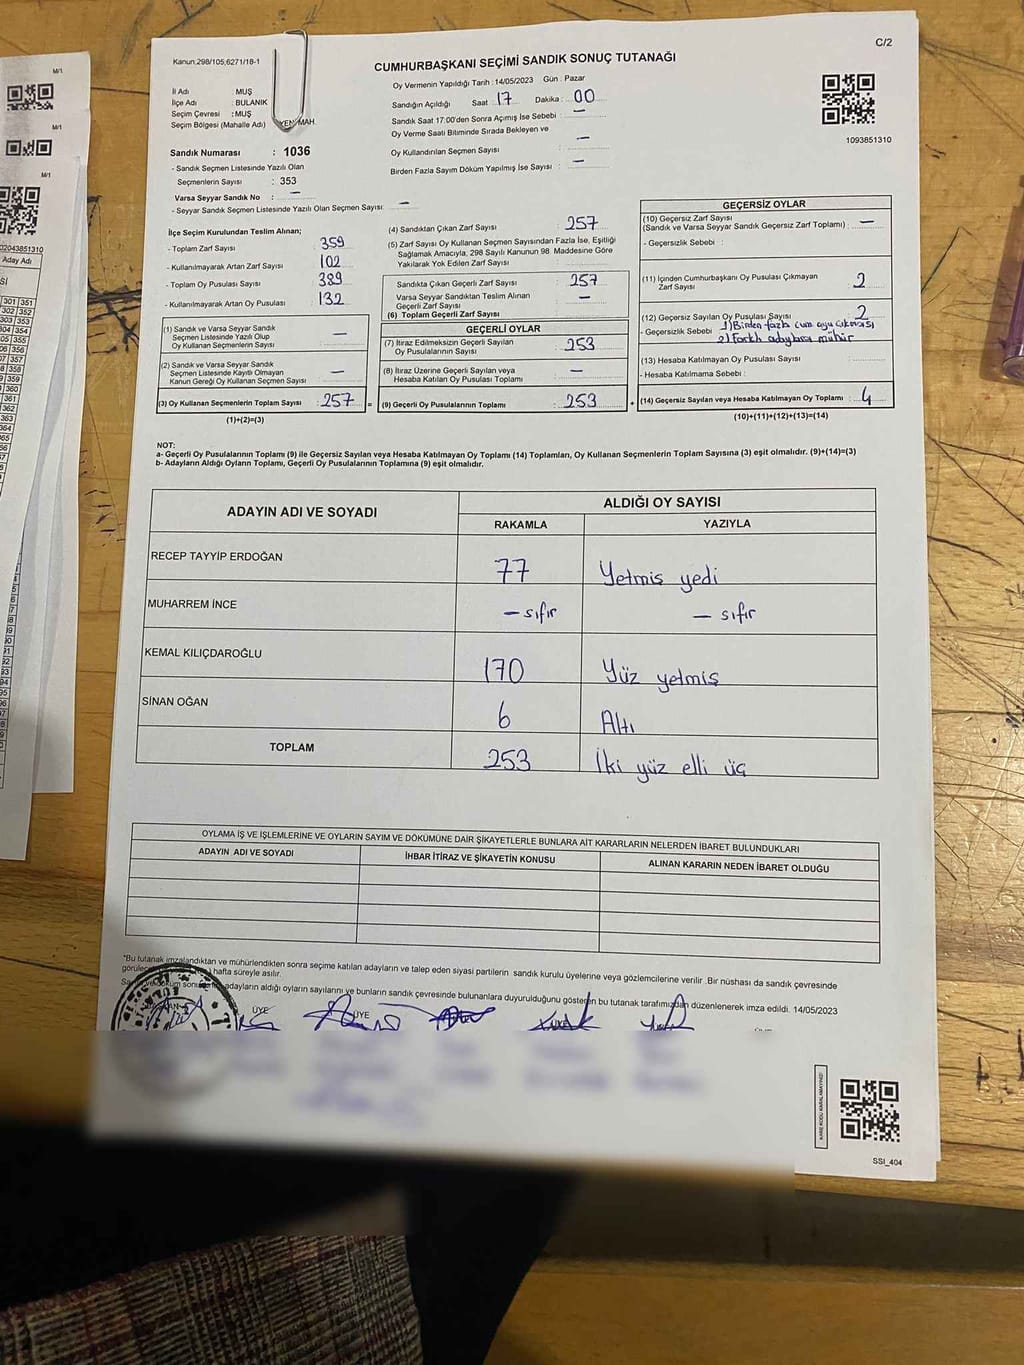 C/2
Kanun:298/105,6271/18-1
CUMHURBAŞKANI SEÇİMİ SANDIK SONUÇ TUTANAĞI
Oy Vermenin Yapıldığı Tarih : 14/05/2023 Gün : Pazar
İl Adı : MUŞ
İlçe Adı : BULANIK
Seçim Çevresi : MUŞ
Seçim Bölgesi (Mahalle Adı) MAH.
Sandığın Açıldığı Saat : 17 Dakika : 00
Sandık Saat 17:00'den Sonra Açmış İse Sebebi : –
Oy Verme Saati Bitiminde Sırada Bekleyen ve
Oy Kullandırılan Seçmen Sayısı : –
Birden Fazla Sayım Döküm Yapılmış İse Sayısı : –
1093851310
Sandık Numarası : 1036
- Sandık Seçmen Listesinde Yazılı Olan
Seçmenlerin Sayısı : 353
Varsa Seyyar Sandık No : –
- Seyyar Sandık Seçmen Listesinde Yazılı Olan Seçmen Sayısı: –
İlçe Seçim Kurulundan Teslim Alınan;
- Toplam Zarf Sayısı : 359
- Kullanılmayarak Artan Zarf Sayısı : 102
- Toplam Oy Pusulası Sayısı : 389
- Kullanılmayarak Artan Oy Pusulası : 132
(1) Sandık ve Varsa Seyyar Sandık
Seçmen Listesinde Yazılı Olup
Oy Kullanan Seçmenlerin Sayısı : –
(2) Sandık ve Varsa Seyyar Sandık
Seçmen Listesinde Kayıtlı Olmayan
Kanun Gereği Oy Kullanan Seçmen Sayısı : –
(3) Oy Kullanan Seçmenlerin Toplam Sayısı : 257 =
(1)+(2)=(3)
(4) Sandıktan Çıkan Zarf Sayısı : 257
(5) Zarf Sayısı Oy Kullanan Seçmen Sayısından Fazla İse, Eşitliği
Sağlamak Amacıyla, 298 Sayılı Kanunun 98. Maddesine Göre
Yakılarak Yok Edilen Zarf Sayısı :
Sandıkta Çıkan Geçerli Zarf Sayısı : 257
Varsa Seyyar Sandıktan Teslim Alınan
Geçerli Zarf Sayısı : –
(6) Toplam Geçerli Zarf Sayısı :
GEÇERLİ OYLAR
(7) İtiraz Edilmeksizin Geçerli Sayılan
Oy Pusulalarının Sayısı : 253
(8) İtiraz Üzerine Geçerli Sayılan veya
Hesaba Katılan Oy Pusulaları Toplamı : –
(9) Geçerli Oy Pusulalarının Toplamı : 253 +
GEÇERSİZ OYLAR
(10) Geçersiz Zarf Sayısı
(Sandık ve Varsa Seyyar Sandık Geçersiz Zarf Toplamı) : –
- Geçersizlik Sebebi :
(11) İçinden Cumhurbaşkanı Oy Pusulası Çıkmayan
Zarf Sayısı : 2
(12) Geçersiz Sayılan Oy Pusulası Sayısı : 2
- Geçersizlik Sebebi : 1) Birden fazla cum oyu çıkması
2) Farklı adaylara mühür
(13) Hesaba Katılmayan Oy Pusulası Sayısı :
- Hesaba Katılmama Sebebi :
(14) Geçersiz Sayılan veya Hesaba Katılmayan Oy Toplamı : 4
(10)+(11)+(12)+(13)=(14)
NOT:
a- Geçerli Oy Pusulalarının Toplamı (9) ile Geçersiz Sayılan veya Hesaba Katılmayan Oy Toplamı (14) Toplamları, Oy Kullanan Seçmenlerin Toplam Sayısına (3) eşit olmalıdır. (9)+(14)=(3)
b- Adayların Aldığı Oyların Toplamı, Geçerli Oy Pusulalarının Toplamına (9) eşit olmalıdır.
ADAYIN ADI VE SOYADI ALDIĞI OY SAYISI
RAKAMLA YAZIYLA
RECEP TAYYİP ERDOĞAN 77 Yetmiş yedi
MUHARREM İNCE – sıfır – sıfır
KEMAL KILIÇDAROĞLU 170 Yüz yetmiş
SİNAN OĞAN 6 Altı
TOPLAM 253 İki yüz elli üç
OYLAMA İŞ VE İŞLEMLERİNE VE OYLARIN SAYIM VE DÖKÜMÜNE DAİR ŞİKAYETLERLE BUNLARA AİT KARARLARIN NELERDEN İBARET BULUNDUKLARI
ADAYIN ADI VE SOYADI İHBAR İTİRAZ VE ŞİKAYETİN KONUSU ALINAN KARARIN NEDEN İBARET OLDUĞU
*Bu tutanak imzalandıktan ve mühürlendikten sonra seçime katılan adayların ve talep eden siyasi partilerin sandık kurulu üyelerine veya gözlemcilerine verilir .Bir nüshası da sandık çevresinde
hafta süreyle asılır.
adayların aldığı oyların sayılarını ve bunların sandık çevresinde bulunanlara duyurulduğunu gösteren bu tutanak tarafımızdan düzenlenerek imza edildi. 14/05/2023
ÜYE ÜYE
KARE KODU KARALAMAYINIZ!
SSI_404
M/1
M/1
M/1
02043851310
Aday Adı
301 351
302 352
303 353
304 354